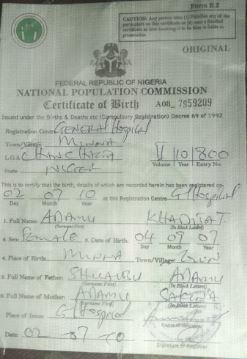 Form B.2
CAUTION: Any person who (1) falsifies any of the
particulars on this certificate or (2) uses a falsified
certificate as true knowing it to be false is liable to
prosecution.
ORIGINAL
FEDERAL REPUBLIC OF NIGERIA
NATIONAL POPULATION COMMISSION
Certificate of Birth A08 7859209
Issued under the Births & Deaths etc (Compulsory Registration) Decree 69 of 1992
Registration Centre General Hospital
Town/Village Minna
L.G.A. Chanchaga II 10/800
Volume Year Entry No.
State Niger
This is to certify that the birth, details of which are recorded herein has been registered on
02 07 10 at this Registration Centre G/Hospital
Day Month Year
1. Full Name: ADAMU KHADIJAT
(Surname First) (In Block Letters)
2. Sex Female 3. Date of Birth 04 09 07
Day Month Year
4. Place of Birth Minna Town/Village
5. Full Name of Father: SHUAIBU ADAMU
(Surname First) (In Block Letters)
6. Full Name of Mother: ADAMU
(Surname First) (In Block Letters)
Place of Issue: G/Hospital
Date: 02 07 10
Signature of Registrar